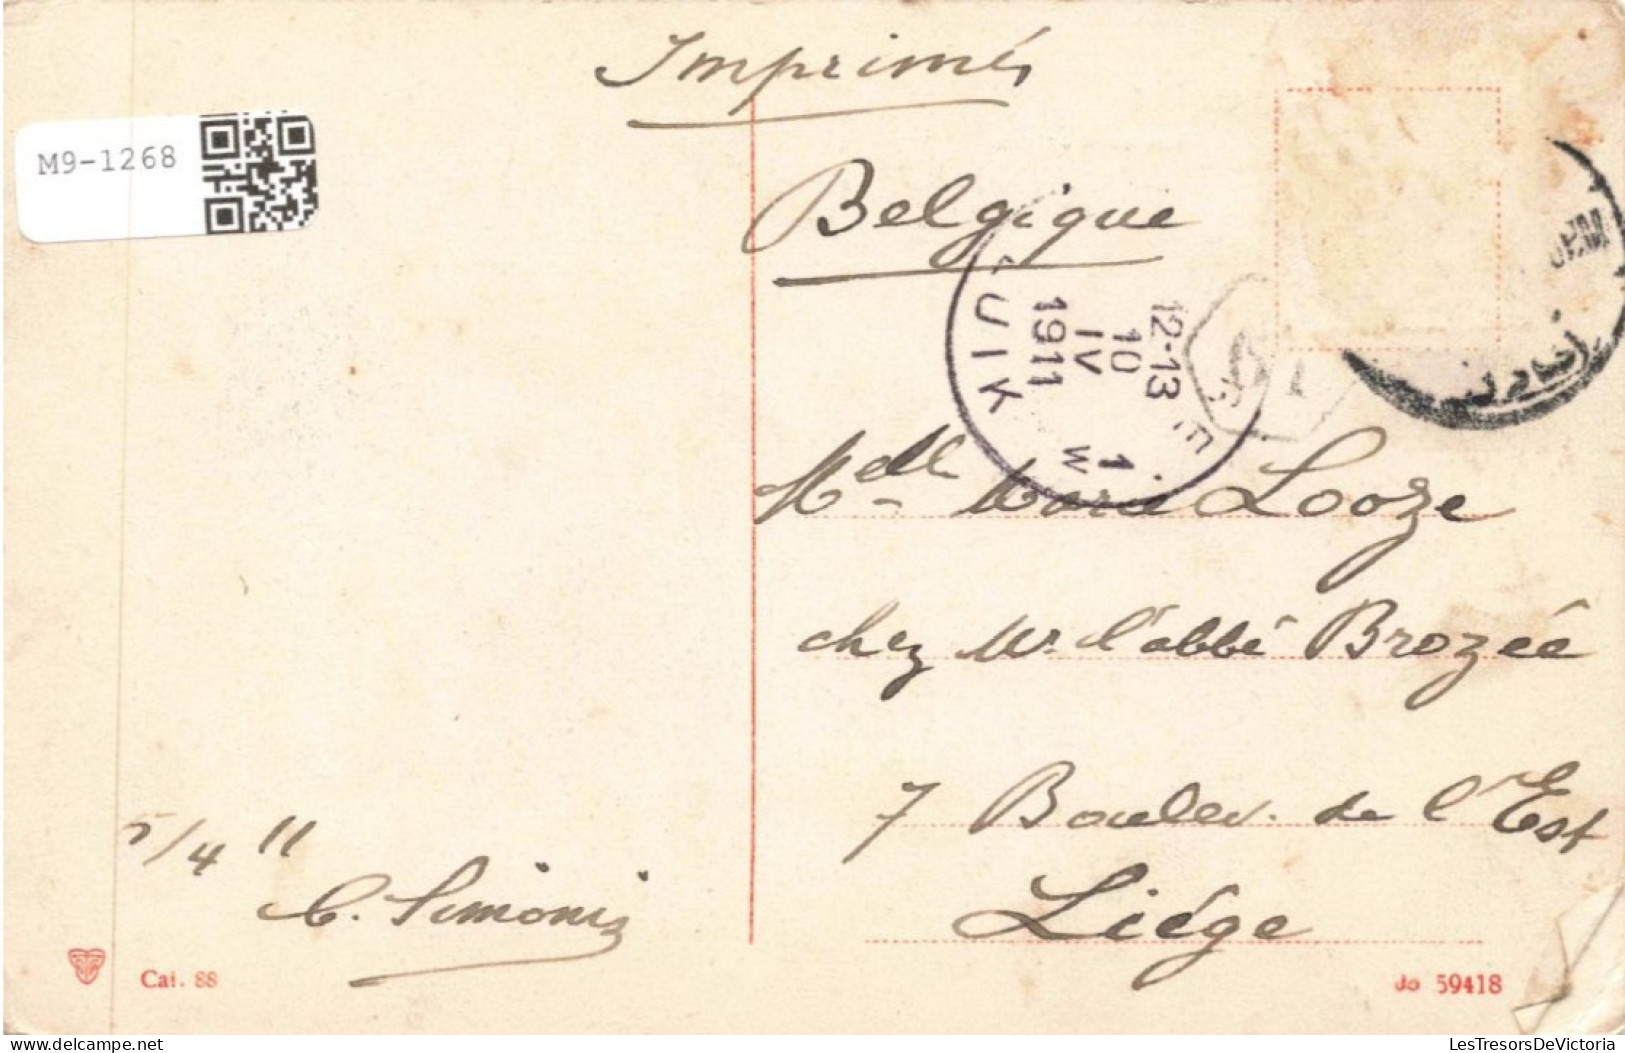 Imprimés
M9-1268
Belgique
LUIK
12-13
10
IV
1911
1
W
Mdlle Marie Looze
chez Mr. l'abbé Brozée
7 Boulev. de l'Est
Liége
5/4 11
C. Simonis
Cat. 88
59418
LesTresorsDeVictoria